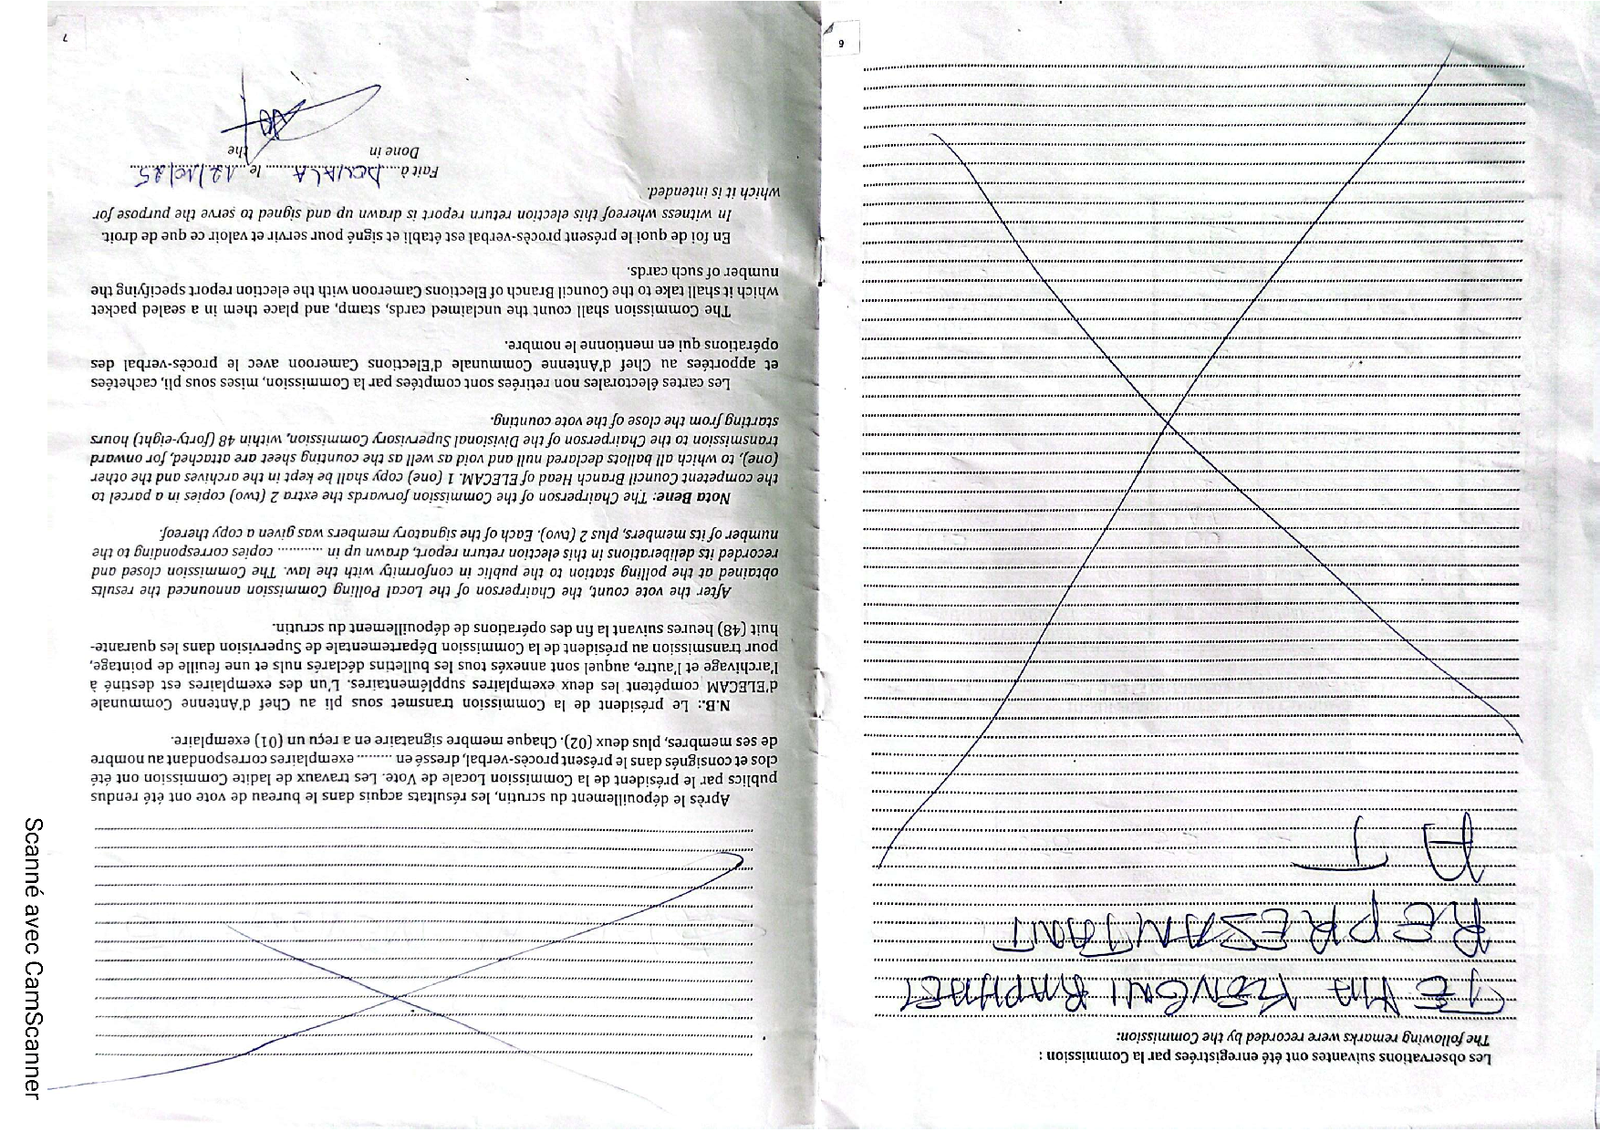 Les observations suivantes ont été enregistrées par la Commission :
The following remarks were recorded by the Commission:
RAPHAEL
REPRESANTANT
6
Après le dépouillement du scrutin, les résultats acquis dans le bureau de vote ont été rendus
publics par le président de la Commission Locale de Vote. Les travaux de ladite Commission ont été
clos et consignés dans le présent procès-verbal, dressé en ......... exemplaires correspondant au nombre
de ses membres, plus deux (02). Chaque membre signataire en a reçu un (01) exemplaire.
N.B.: Le président de la Commission transmet sous pli au Chef d'Antenne Communale
d'ELECAM compétent les deux exemplaires supplémentaires. L'un des exemplaires est destiné à
l'archivage et l'autre, auquel sont annexés tous les bulletins déclarés nuls et une feuille de pointage,
pour transmission au président de la Commission Départementale de Supervision dans les quarante-
huit (48) heures suivant la fin des opérations de dépouillement du scrutin.
After the vote count, the Chairperson of the Local Polling Commission announced the results
obtained at the polling station to the public in conformity with the law. The Commission closed and
recorded its deliberations in this election return report, drawn up in ............ copies corresponding to the
number of its members, plus 2 (two). Each of the signatory members was given a copy thereof.
Nota Bene: The Chairperson of the Commission forwards the extra 2 (two) copies in a parcel to
the competent Council Branch Head of ELECAM. 1 (one) copy shall be kept in the archives and the other
(one), to which all ballots declared null and void as well as the counting sheet are attached, for onward
transmission to the Chairperson of the Divisional Supervisory Commission, within 48 (forty-eight) hours
starting from the close of the vote counting.
Les cartes électorales non retirées sont comptées par la Commission, mises sous pli, cachetées
et apportées au Chef d'Antenne Communale d'Elections Cameroon avec le procès-verbal des
opérations qui en mentionne le nombre.
The Commission shall count the unclaimed cards, stamp, and place them in a sealed packet
which it shall take to the Council Branch of Elections Cameroon with the election report specifying the
number of such cards.
En foi de quoi le présent procès-verbal est établi et signé pour servir et valoir ce que de droit.
In witness whereof this election return report is drawn up and signed to serve the purpose for
which it is intended.
Fait à DOUALA le 12/10/25
Done in the
7
Scanné avec CamScanner